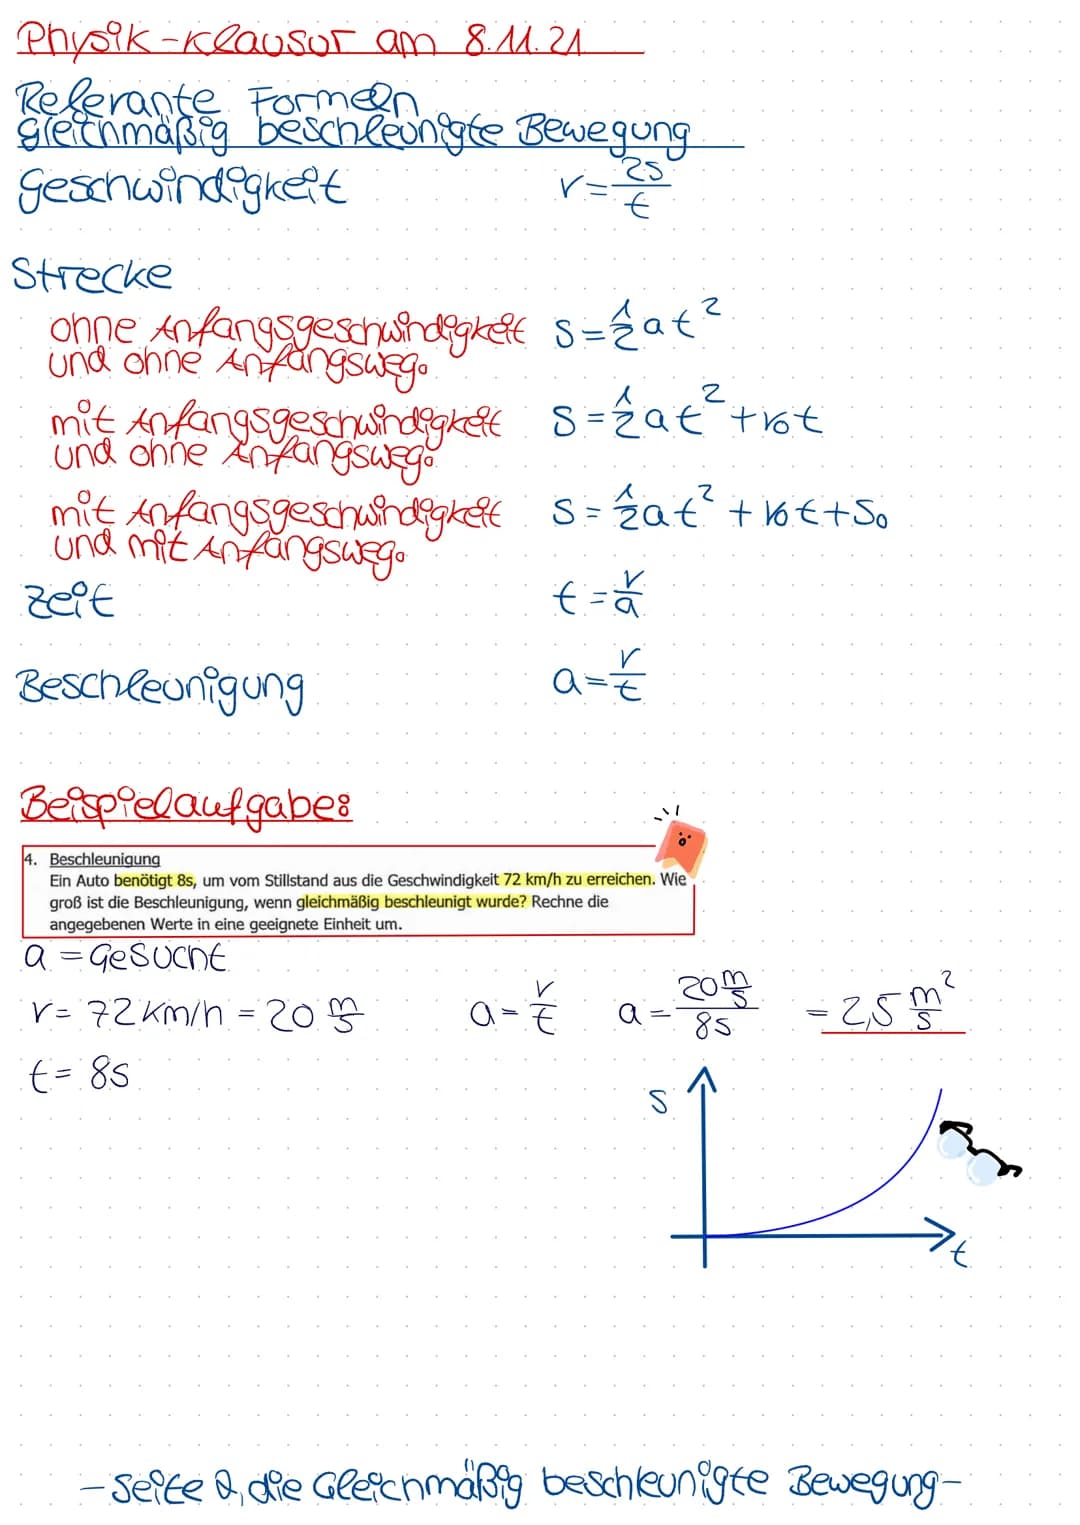 Physik-Klausur am 8.11.21
Relevante Formeln
gleichmäßig beschleunigte Bewegung
Geschwindigkeit v = 2s/t
Strecke
ohne Anfangsgeschwindigkeit s = 1/2 at²
und ohne Anfangsweg.
mit Anfangsgeschwindigkeit s = 1/2 at² + v₀t
und ohne Anfangsweg.
mit Anfangsgeschwindigkeit s = 1/2 at² + v₀t + s₀
und mit Anfangsweg.
Zeit t = v/a
Beschleunigung a = v/t
Beispielaufgabe:
4. Beschleunigung
Ein Auto benötigt 8s, um vom Stillstand aus die Geschwindigkeit 72 km/h zu erreichen. Wie
groß ist die Beschleunigung, wenn gleichmäßig beschleunigt wurde? Rechne die
angegebenen Werte in eine geeignete Einheit um.
a = Gesucht
v = 72 km/h = 20 m/s a = v/t a = 20 m/s / 8s = 2,5 m/s ²
t = 8s
s
t
- Seite 2, die Gleichmäßig beschleunigte Bewegung -